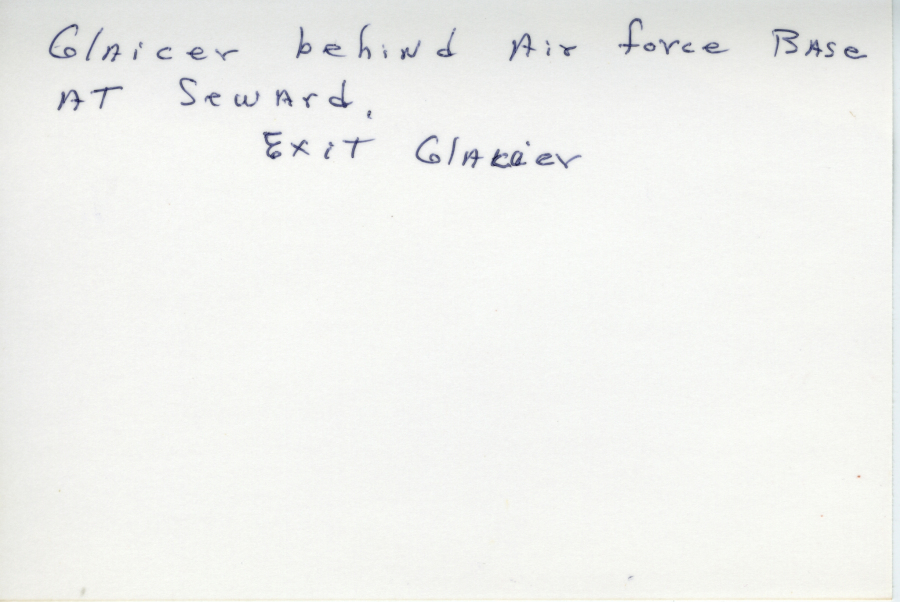 Glaicer behind Air force Base
AT Seward.
Exit Glacier